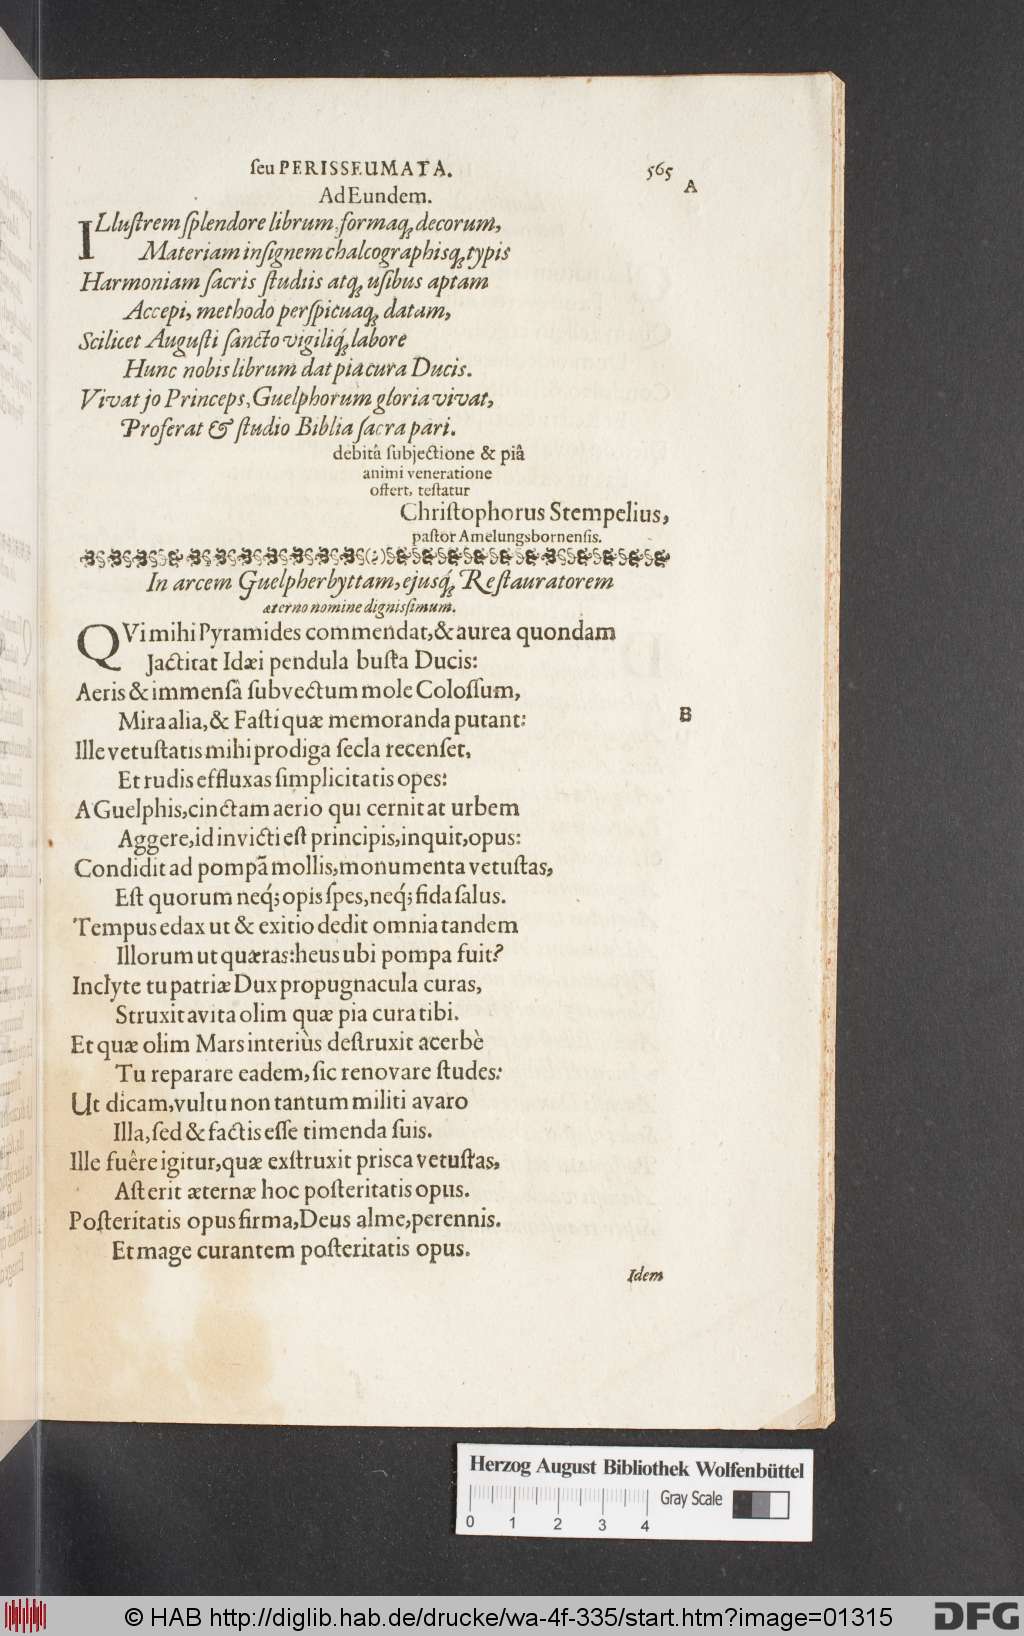 ſeu PERISSEUMATA. 565
A
Ad Eundem.
ILluſtrem ſplendore librum, formaq́; decorum,
Materiam inſignem chalcographisq́; typis
Harmoniam ſacris ſtudiis atq́; uſibus aptam
Accepi, methodo perſpicuaq́; datam,
Scilicet Auguſti ſancto vigiliq́; labore
Hunc nobis librum dat pia cura Ducis.
Vivat jo Princeps, Guelphorum gloria vivat,
Proferat & ſtudio Biblia ſacra pari.
debitâ ſubjectione & piâ
animi veneratione
offert, teſtatur
Chriſtophorus Stempelius,
paſtor Amelungsbornenſis.
In arcem Guelpherbyttam, ejusq́; Reſtauratorem
æterno nomine digniſſimum.
QVi mihi Pyramides commendat, & aurea quondam
Jactitat Idæi pendula buſta Ducis:
Aeris & immenſâ ſubvectum mole Coloſſum,
Mira alia, & Faſti quæ memoranda putant:
B
Ille vetuſtatis mihi prodiga ſecla recenſet,
Et rudis effluxas ſimplicitatis opes:
A Guelphis, cinctam aerio qui cernit at urbem
Aggere, id invicti eſt principis, inquit, opus:
Condidit ad pompã mollis, monumenta vetuſtas,
Eſt quorum neq́; opis ſpes, neq́; fida ſalus.
Tempus edax ut & exitio dedit omnia tandem
Illorum ut quæras: heus ubi pompa fuit?
Inclyte tu patriæ Dux propugnacula curas,
Struxit avita olim quæ pia cura tibi.
Et quæ olim Mars interiùs deſtruxit acerbè
Tu reparare eadem, ſic renovare ſtudes:
Ut dicam, vultu non tantum militi avaro
Illa, ſed & factis eſſe timenda ſuis.
Ille fuêre igitur, quæ exſtruxit prisca vetuſtas,
Aſt erit æternæ hoc poſteritatis opus.
Poſteritatis opus firma, Deus alme, perennis.
Et mage curantem poſteritatis opus.
Idem
Herzog August Bibliothek Wolfenbüttel
Gray Scale
0 1 2 3 4
© HAB http://diglib.hab.de/drucke/wa-4f-335/start.htm?image=01315
DFG